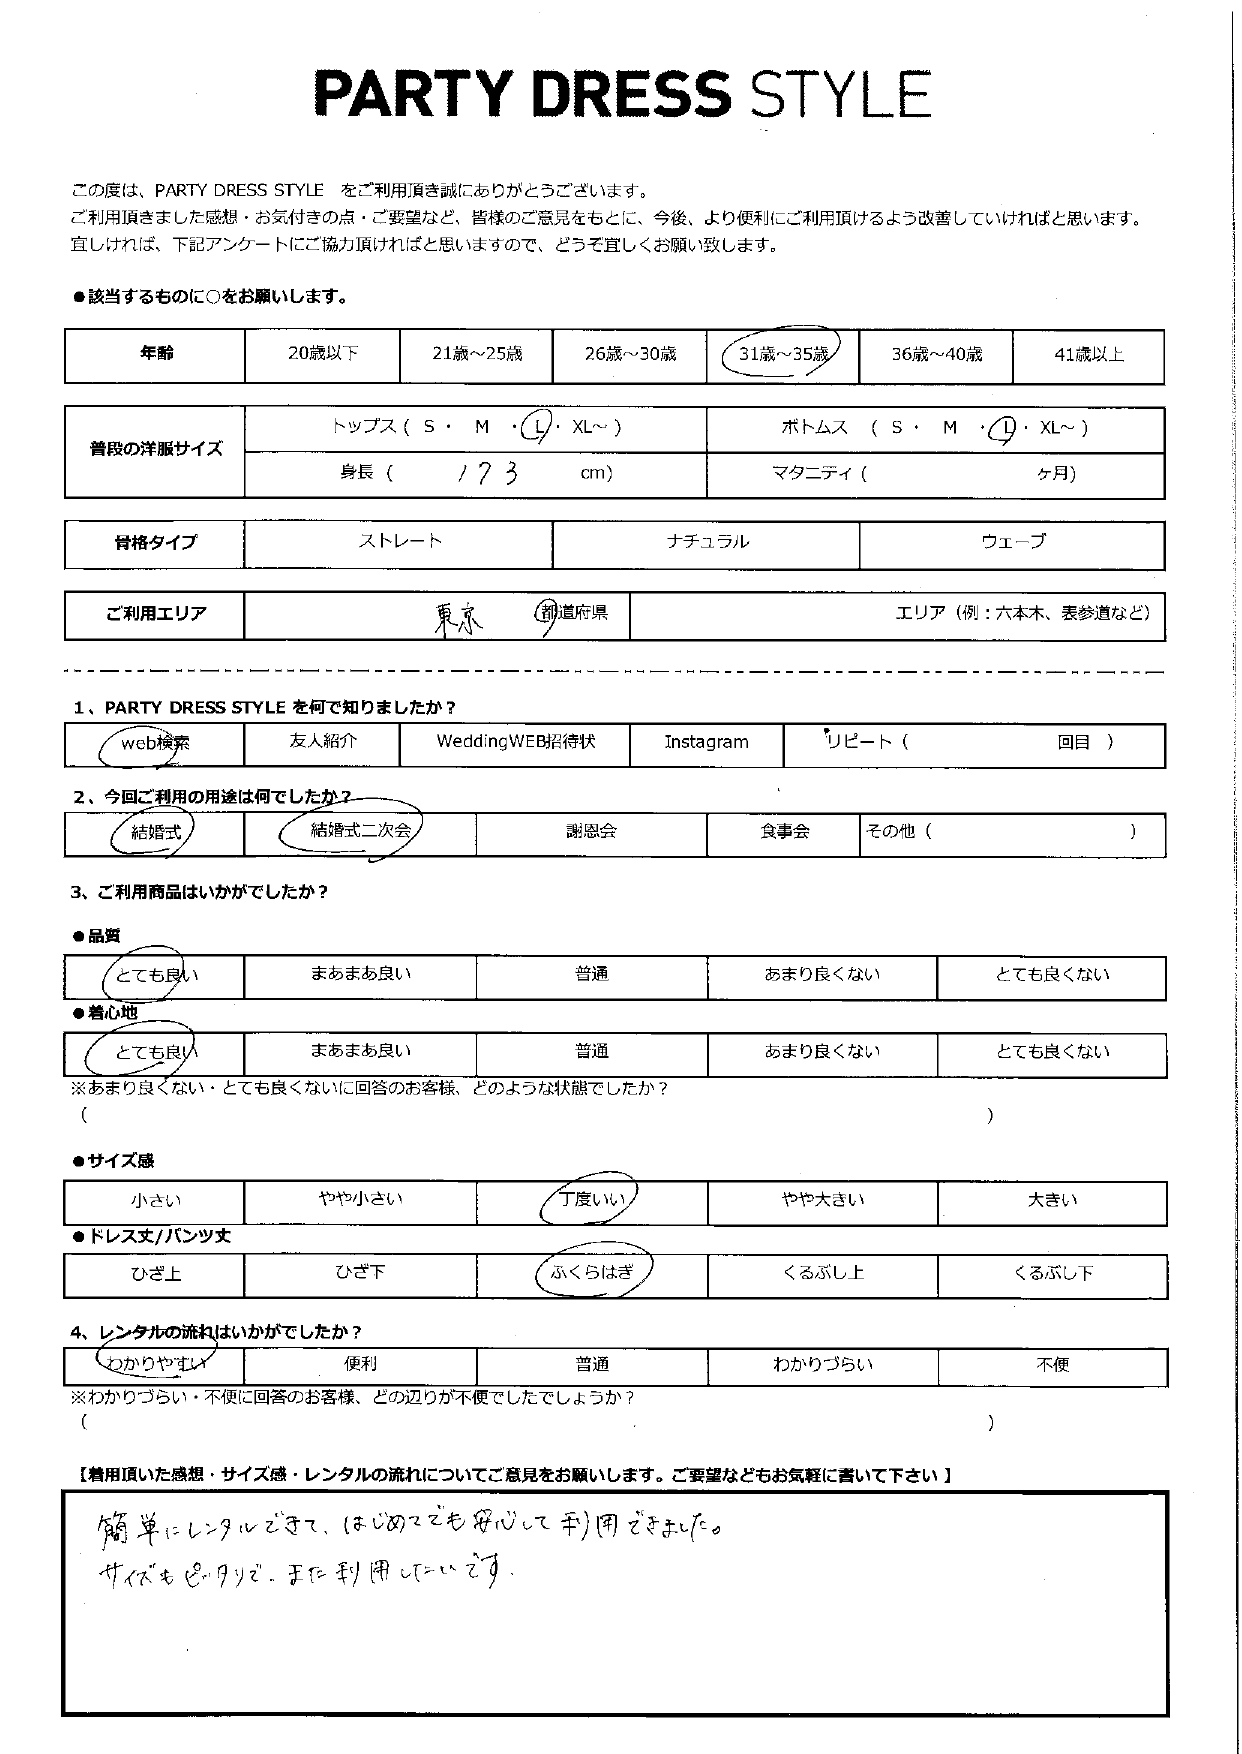 PARTY DRESS STYLE
この度は、PARTY DRESS STYLE をご利用頂き誠にありがとうございます。
ご利用頂きました感想・お気付きの点・ご要望など、皆様のご意見をもとに、今後、より便利にご利用頂けるよう改善していければと思います。
宜しければ、下記アンケートにご協力頂ければと思いますので、どうぞ宜しくお願い致します。
●該当するものに○をお願いします。
年齢 20歳以下 21歳～25歳 26歳～30歳 31歳～35歳 36歳～40歳 41歳以上
普段の洋服サイズ
トップス ( S ・ M ・ L ・ XL～ ) ボトムス ( S ・ M ・ L ・ XL～ )
身長 ( 173 cm) マタニティ ( ヶ月)
骨格タイプ ストレート ナチュラル ウェーブ
ご利用エリア 東京 都道府県 エリア（例：六本木、表参道など）
1、PARTY DRESS STYLE を何で知りましたか？
web検索 友人紹介 WeddingWEB招待状 Instagram リピート ( 回目 )
2、今回ご利用の用途は何でしたか？
結婚式 結婚式二次会 謝恩会 食事会 その他 ( )
3、ご利用商品はいかがでしたか？
●品質
とても良い まあまあ良い 普通 あまり良くない とても良くない
●着心地
とても良い まあまあ良い 普通 あまり良くない とても良くない
※あまり良くない・とても良くないに回答のお客様、どのような状態でしたか？
( )
●サイズ感
小さい やや小さい 丁度いい やや大きい 大きい
●ドレス丈/パンツ丈
ひざ上 ひざ下 ふくらはぎ くるぶし上 くるぶし下
4、レンタルの流れはいかがでしたか？
わかりやすい 便利 普通 わかりづらい 不便
※わかりづらい・不便に回答のお客様、どの辺りが不便でしたでしょうか？
( )
【着用頂いた感想・サイズ感・レンタルの流れについてご意見をお願いします。ご要望などもお気軽に書いて下さい】
簡単にレンタルできて、はじめてでも安心して利用できました。
サイズもピッタリで、また利用したいです。